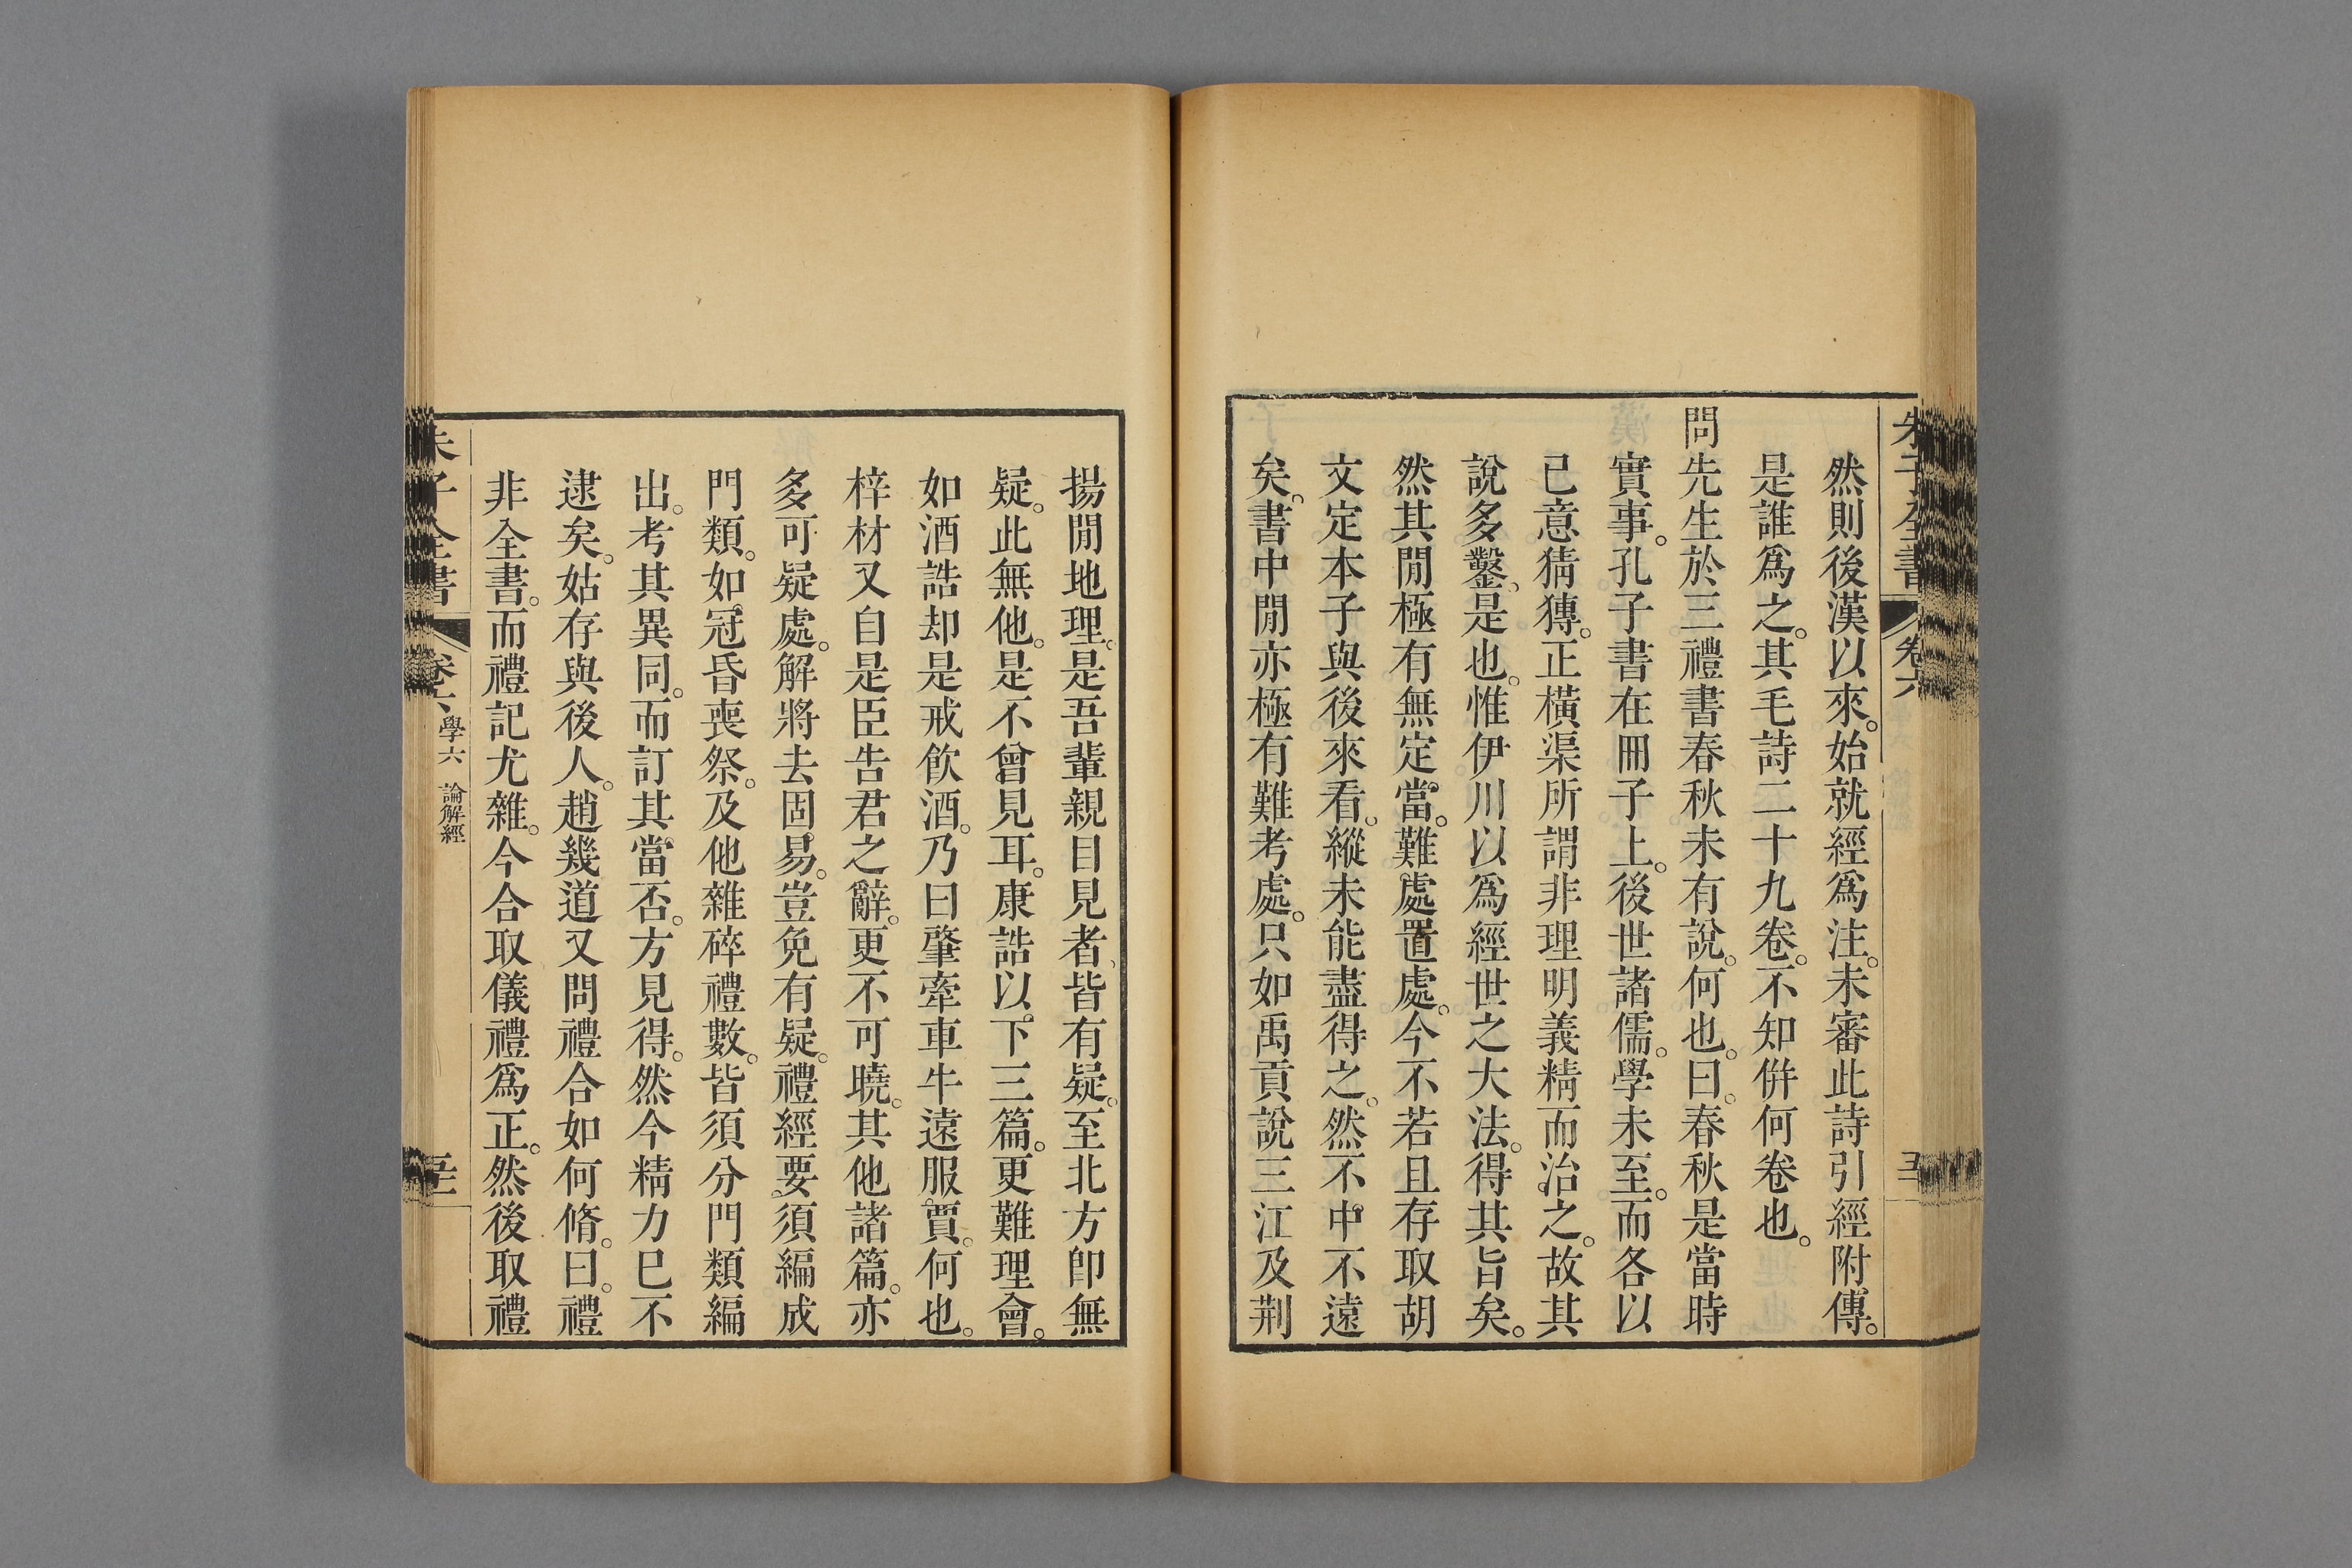 朱子全書 卷六
然則後漢以來。始就經爲注。未審此詩引經附傳。
是誰爲之。其毛詩二十九卷。不知併何卷也。
問先生於三禮書春秋未有說。何也。曰。春秋是當時
實事。孔子書在冊子上。後世諸儒。學未至。而各以
己意猜傳。正橫渠所謂非理明義精而治之。故其
說多鑿、是也。惟伊川以爲經世之大法。得其旨矣。
然其閒極有無定當。難處置處。今不若且存取胡
文定本子與後來看。縱未能盡得之。然不中不遠
矣。書中閒亦極有難考處。只如禹貢說三江及荆
揚閒地理。是吾輩親目見者、皆有疑。至北方卽無
疑。此無他。是不曾見耳。康誥以下三篇。更難理會。
如酒誥却是戒飮酒。乃曰肇牽車牛遠服賈。何也。
梓材又自是臣告君之辭。更不可曉。其他諸篇。亦
多可疑處。解將去固易。豈免有疑。禮經要須編成
門類。如冠昏喪祭。及他雜碎禮數。皆須分門類編
出。考其異同。而訂其當否。方見得。然今精力已不
逮矣。姑存與後人。趙幾道又問禮合如何脩。曰。禮
非全書。而禮記尤雜。今合取儀禮爲正。然後取禮
朱子全書 卷六 學六 論解經